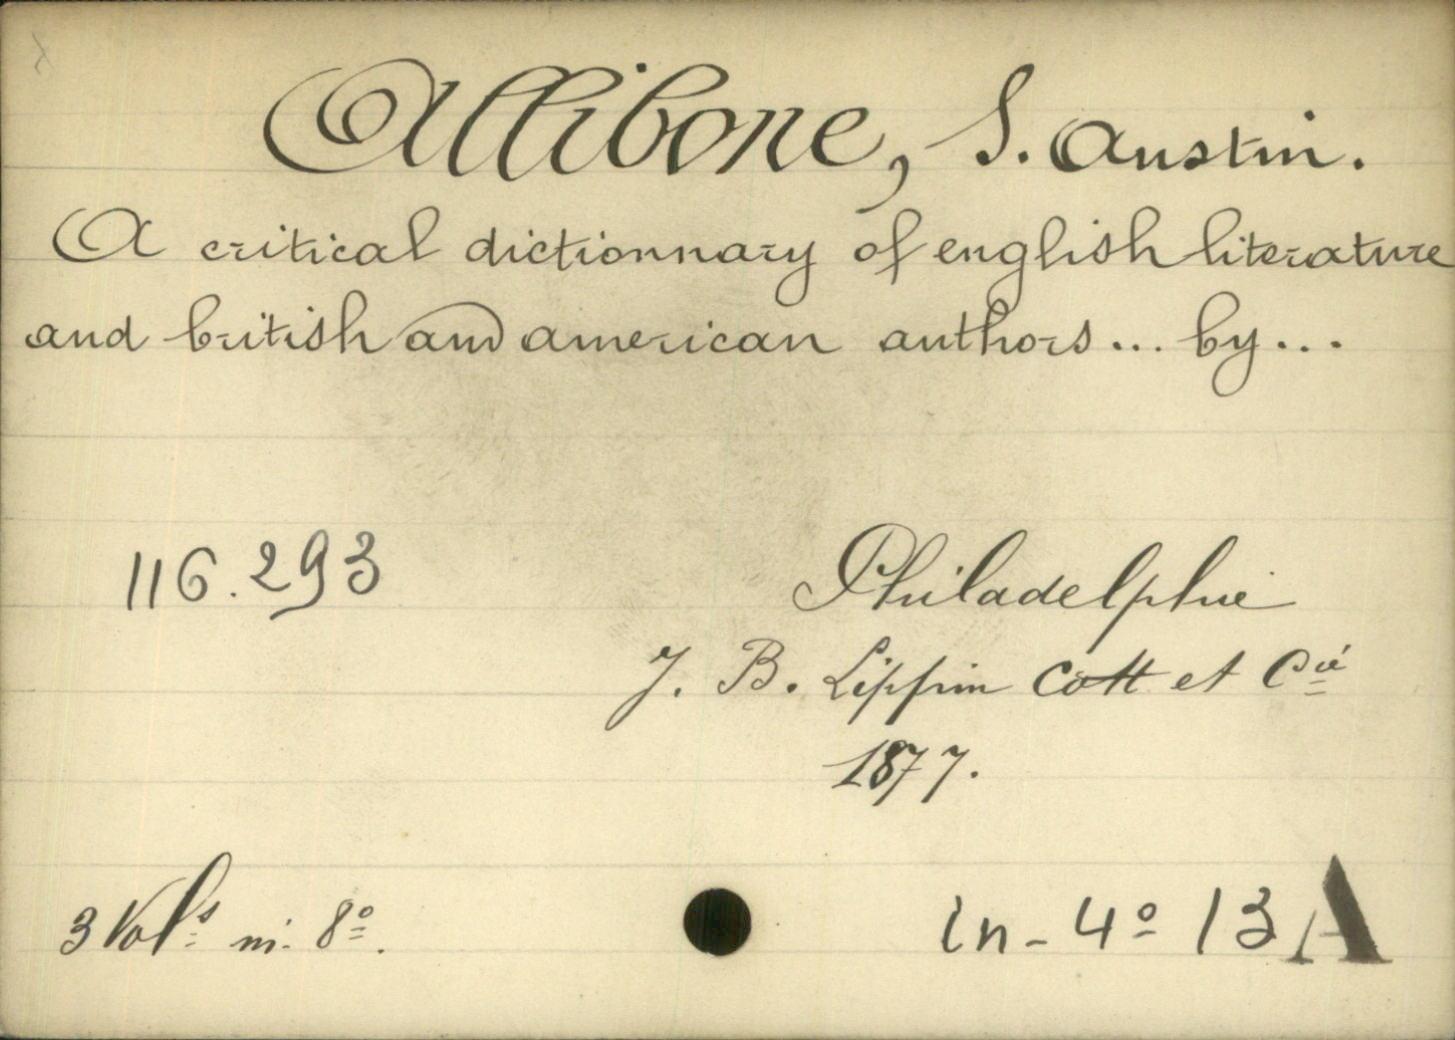 Allibone, S. Austin.
A critical dictionnary of english literature
and british and american authors... by...
116.293
Philadelphie
J. B. Lippin Cott et Cie
1877.
3 Vols in-8º.
in-4º 13 A